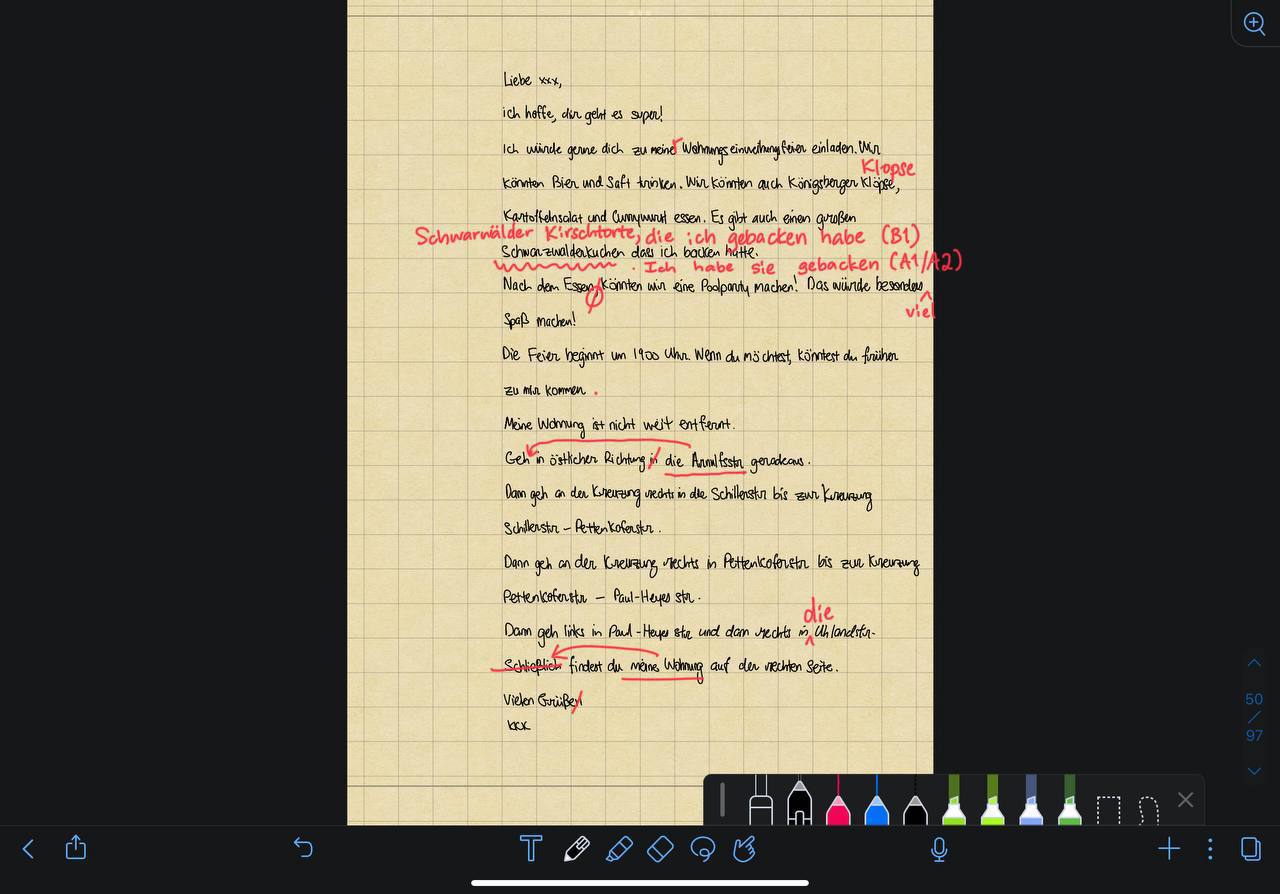 Liebe xxx,
ich hoffe, dir geht es super!
Ich würde gerne dich zu meiner Wohnungseinweihungsfeier einladen. Wir
Klopse
könnten Bier und Saft trinken. Wir könnten auch Königsberger Klöpse,
Kartoffelnsalat und Currywurst essen. Es gibt auch einen großen
Schwarwälder Kirschtorte, die ich gebacken habe (B1)
Schwarzwälderkuchen dass ich backen hatte.
. Ich habe sie gebacken (A1/A2)
Nach dem Essen, könnten wir eine Poolparty machen! Das würde besonders
viel
Spaß machen!
Die Feier beginnt um 1900 Uhr. Wenn du möchtest, könntest du früher
zu mir kommen .
Meine Wohnung ist nicht weit entfernt.
Geh in östlicher Richtung in die Arnulfsstr geradeaus.
Dann geh an der Kreuzung rechts in die Schillerstr bis zur Kreuzung
Schillerstr – Pettenkoferstr.
Dann geh an der Kreuzung rechts in Pettenkoferstr bis zur Kreuzung
Pettenkoferstr – Paul-Heyes str.
die
Dann geh links in Paul-Heyes str und dann rechts in Uhlandstr.
Schließlich findest du meine Wohnung auf der rechten Seite.
Vielen Grüßen
xxx
50
97